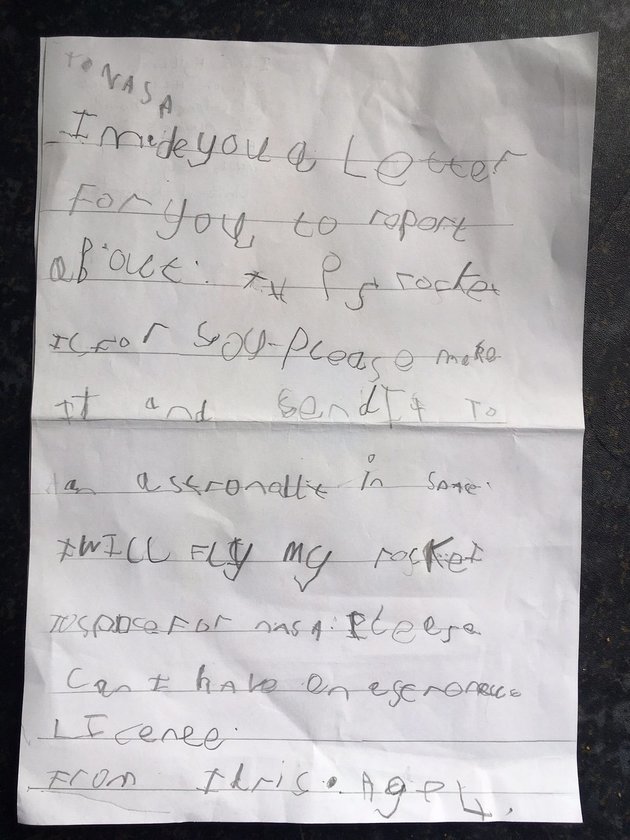 to NASA
I made you a Letter
For you to report
aBout. rocket
is For you. PLease make
It and send It To
an assronallt in
I WILL FLy my rocket
TO space For nasa. PLeese
Can I have an
LIcence.
From Idris. Age 4.